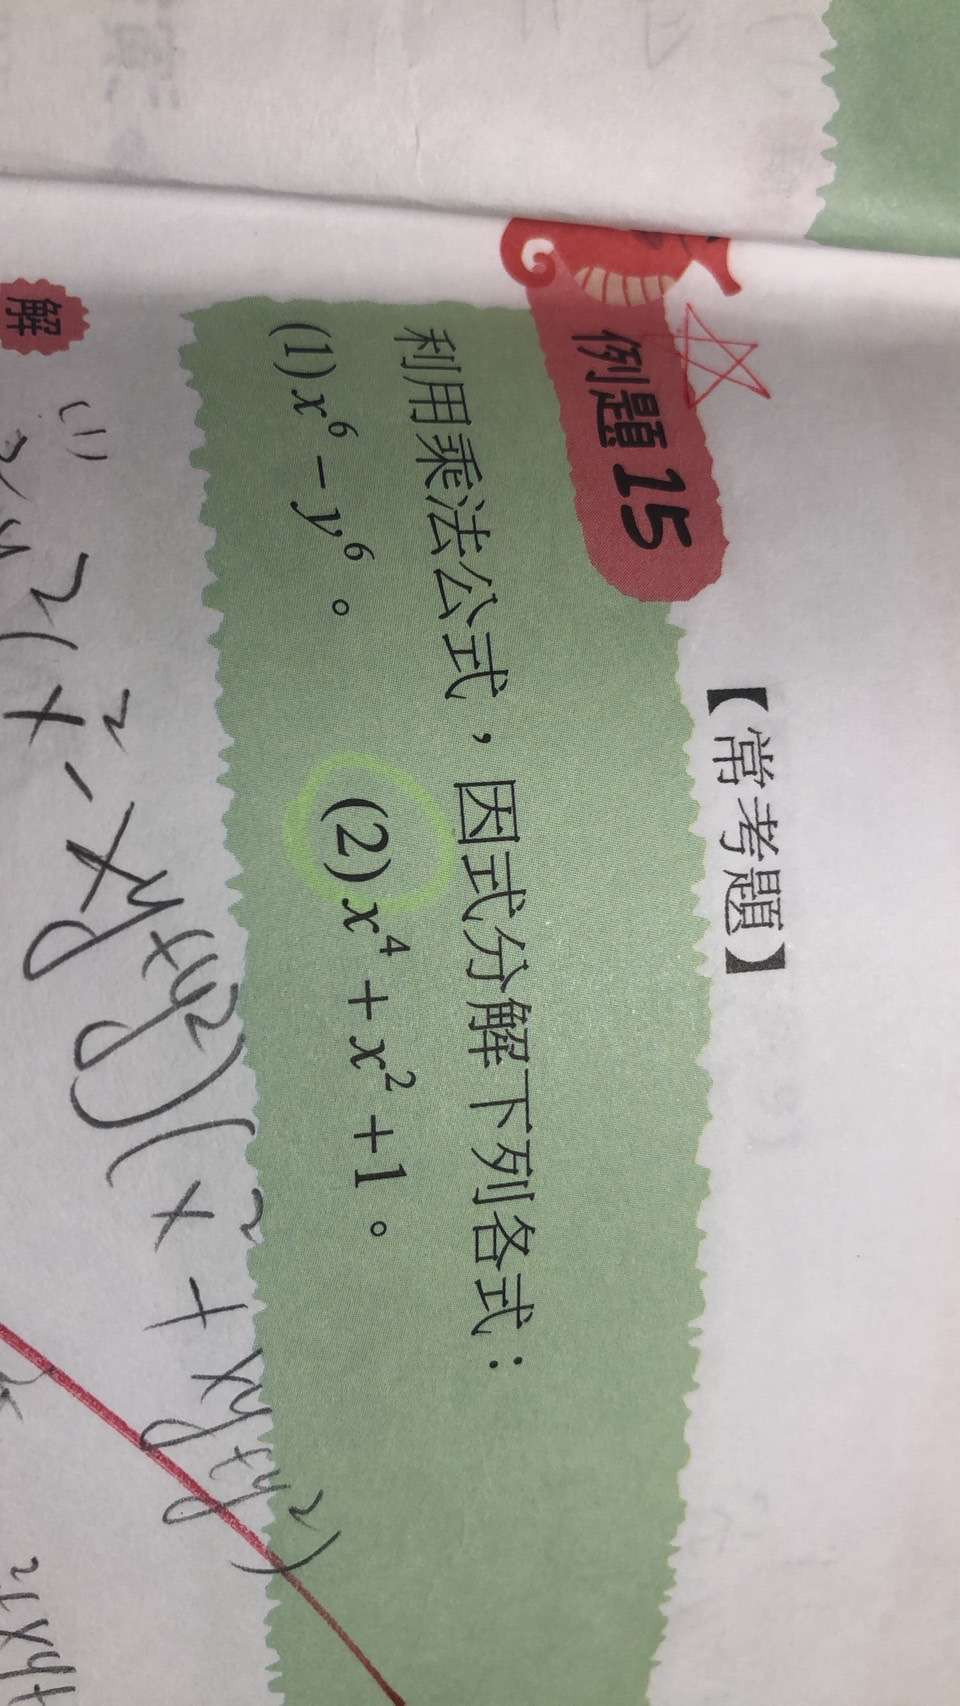 例題15
【常考題】
利用乘法公式，因式分解下列各式：
(1) x⁶ − y⁶。 (2) x⁴ + x² + 1。
解
(1)
x² - xy + y²)(x² + xy + y²)